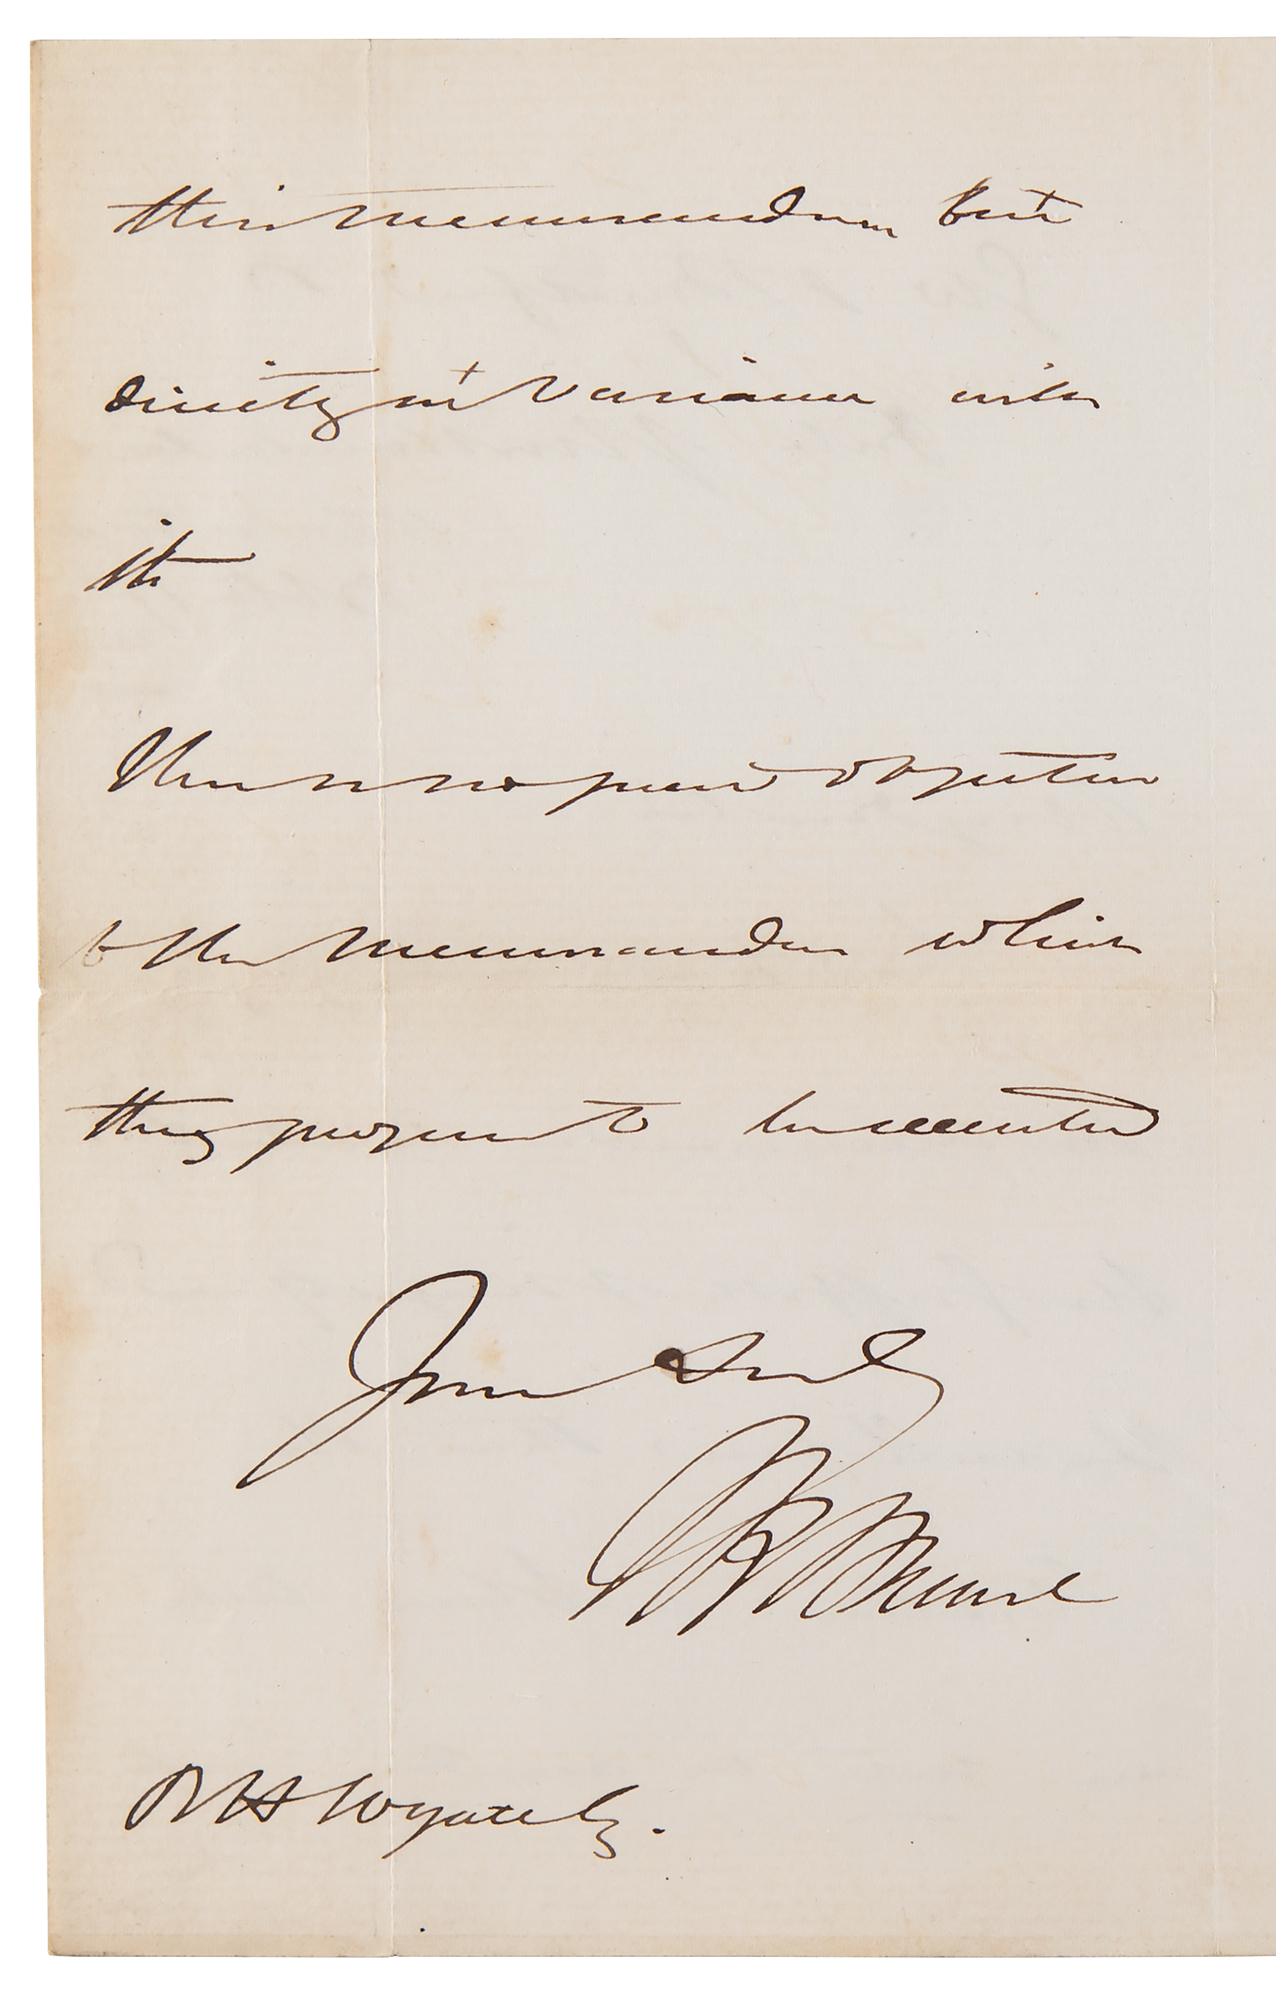 this memorandum but
directly at variance with
it
There is no gived objection
to the memorandum which
they propose to be executed
Yours truly
I K Brunel
R H Wyatt Esq.